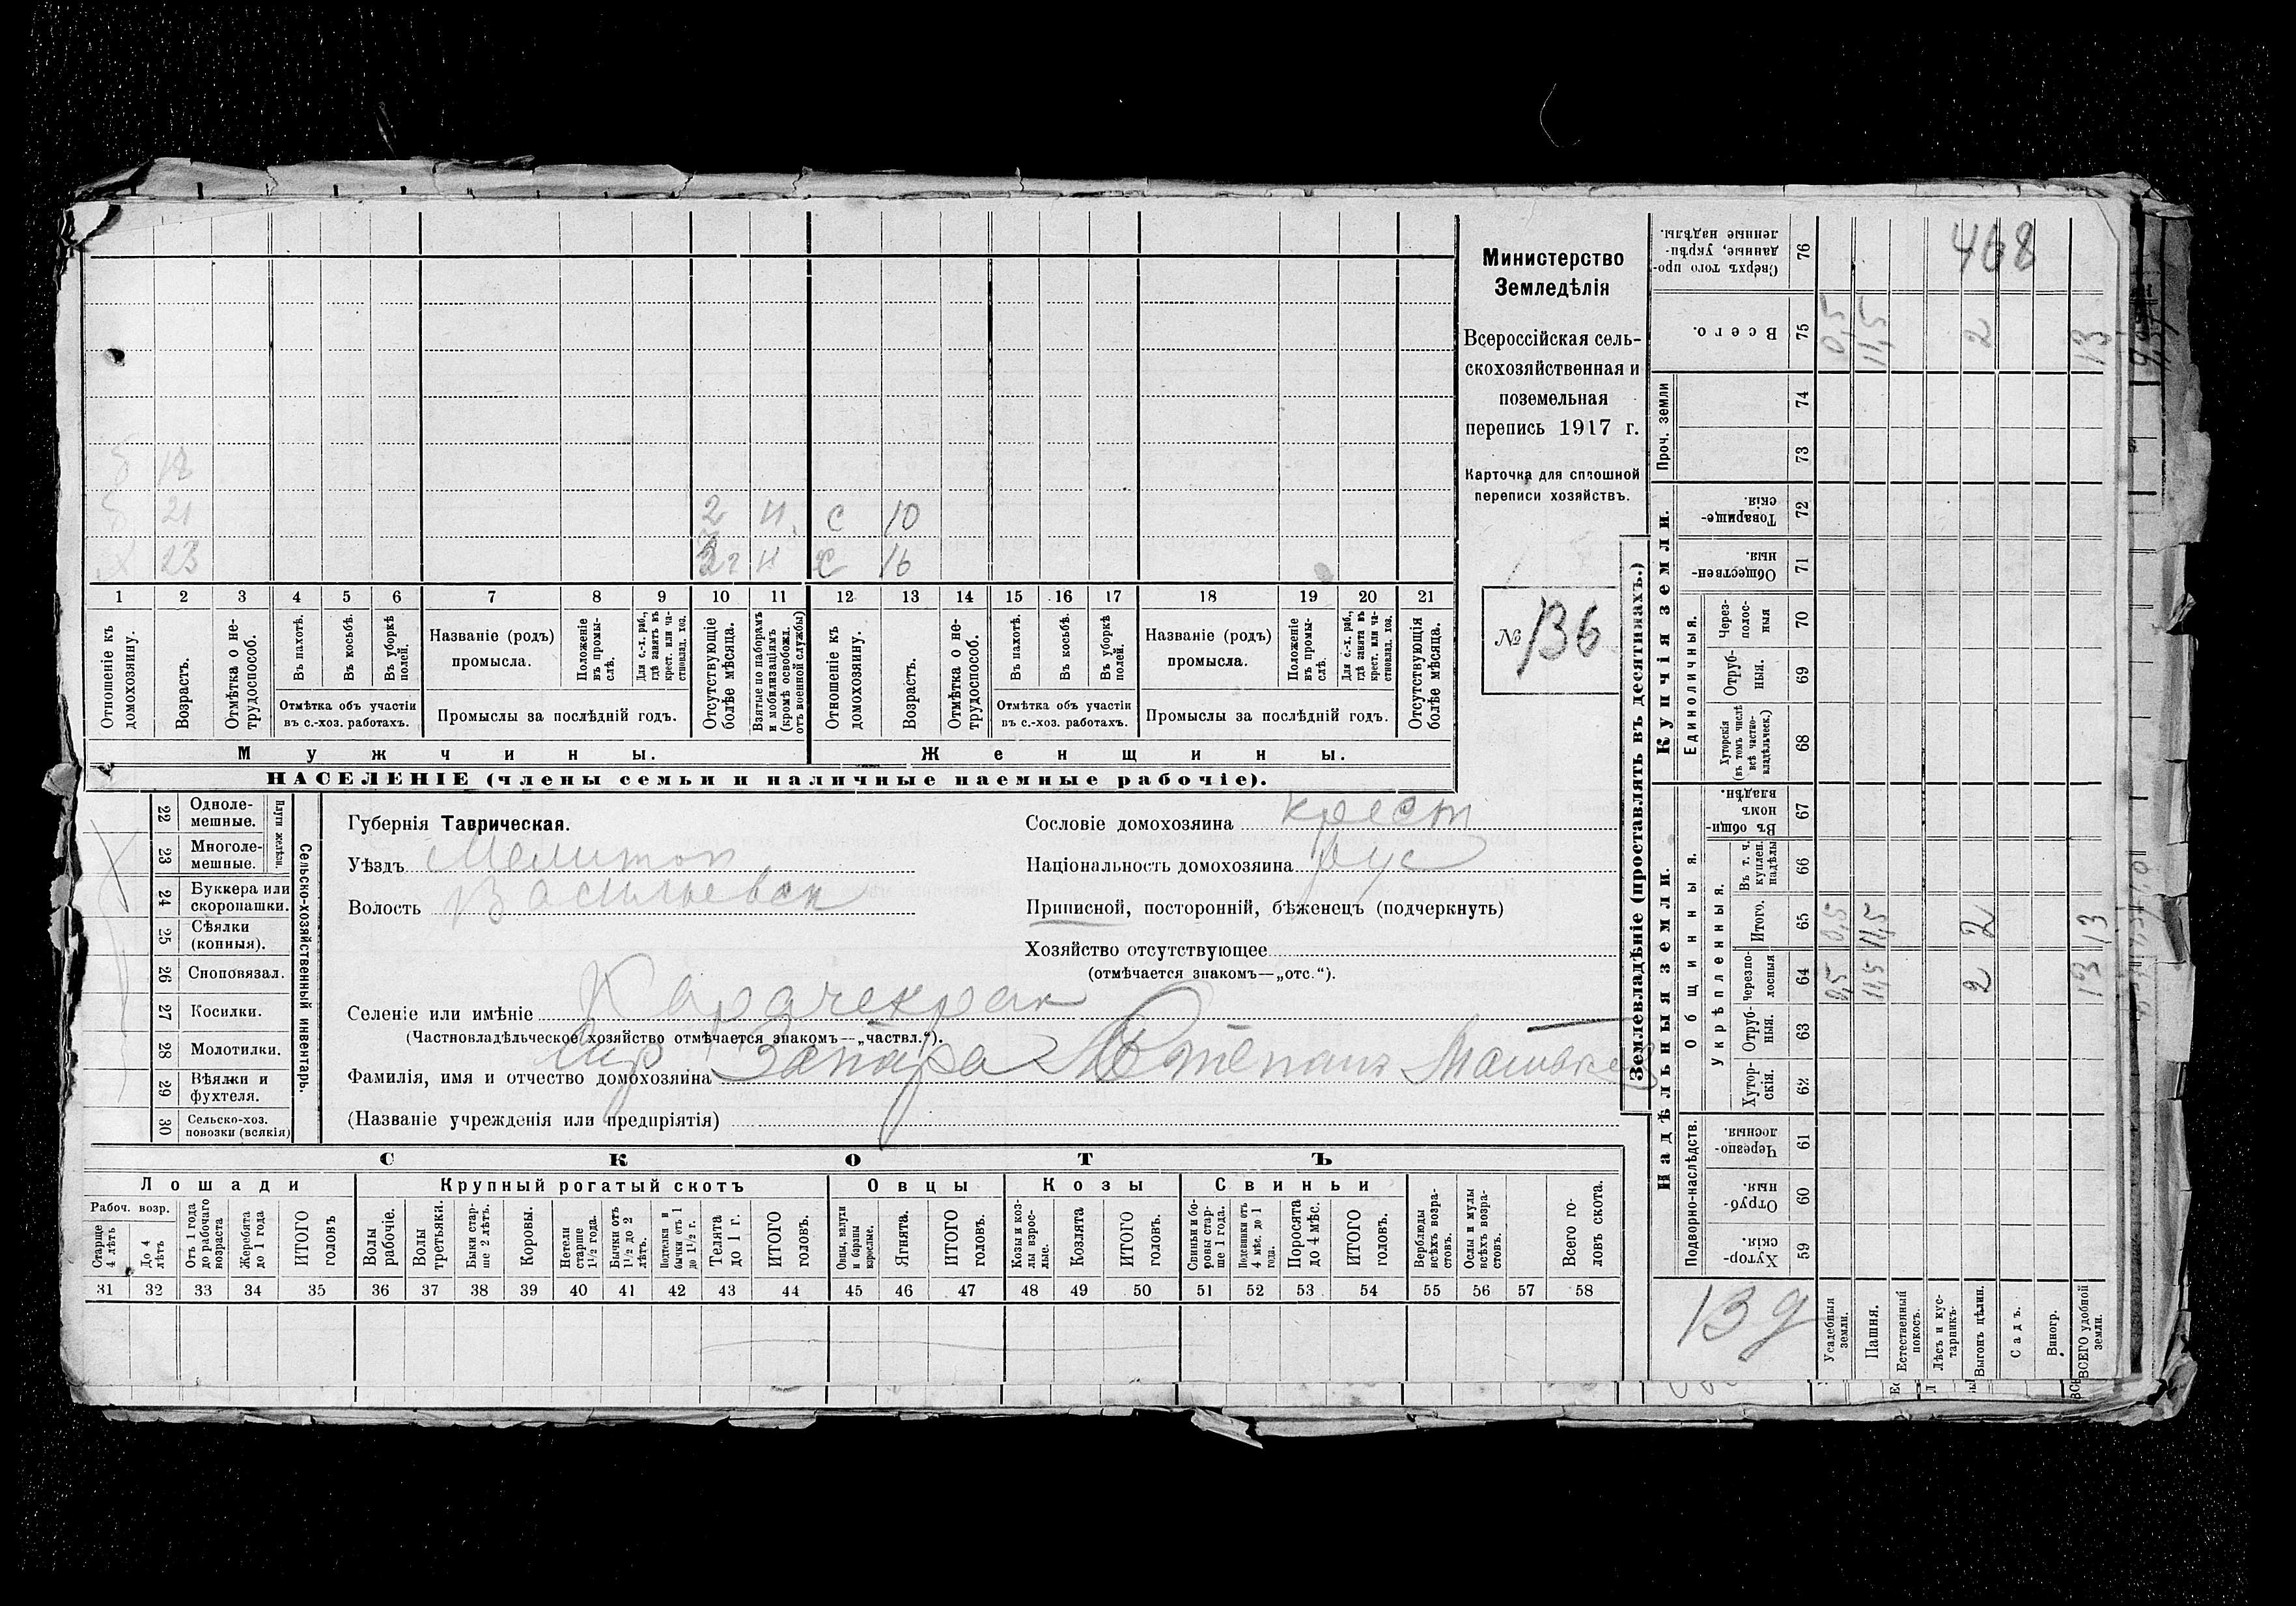 468
Министерство
Земледѣлія
Всероссійская сель-
скохозяйственная и
поземельная
перепись 1917 г.
Карточка для сплошной
переписи хозяйствъ.
№ 136
б 18
б 21 2 н с 10
х 23 2 н с 16
1 2 3 4 5 6 7 8 9 10 11 12 13 14 15 16 17 18 19 20 21
Отношеніе къ домохозяину.
Возрастъ.
Отмѣтка о не-трудоспособ.
Въ пахотѣ.
Въ косьбѣ.
Въ уборкѣ полей.
Отмѣтка объ участіи
въ с.-хоз. работахъ.
Названіе (родъ)
промысла.
Положеніе въ промы-слѣ.
Для с.-х. раб., гдѣ занятъ въ крест. или ча-стновлад. хоз.
Промыслы за послѣдній годъ.
Отсутствующіе болѣе мѣсяца.
Взятые по наборамъ и мобилизаціямъ (кромѣ освобожд. отъ военной службы)
Отношеніе къ домохозяину.
Возрастъ.
Отмѣтка о не-трудоспособ.
Въ пахотѣ.
Въ косьбѣ.
Въ уборкѣ полей.
Отмѣтка объ участіи
въ с.-хоз. работахъ.
Названіе (родъ)
промысла.
Положеніе въ промы-слѣ.
Для с.-х. раб., гдѣ занята въ крест. или ча-стновлад. хоз.
Промыслы за послѣдній годъ.
Отсутствующія болѣе мѣсяца.
Мужчины.
Женщины.
НАСЕЛЕНІЕ (члены семьи и наличные наемные рабочіе).
22 Одноле-мешные.
23 Многоле-мешные.
Плуги желѣзн.
24 Буккера или скоропашки.
25 Сѣялки (конныя).
26 Сноповязал.
27 Косилки.
28 Молотилки.
29 Вѣялки и фухтеля.
30 Сельско-хоз. повозки (всякія)
Сельско-хозяйственный инвентарь.
Губернія Таврическая.
Уѣздъ Мелитоп
Волость Васильевск
Сословіе домохозяина крест
Національность домохозяина рус
Приписной, посторонній, бѣженецъ (подчеркнуть)
Хозяйство отсутствующее
(отмѣчается знакомъ—„отс.“).
Селеніе или имѣніе Карачекрак
(Частновладѣльческое хозяйство отмѣчается знакомъ—„частвл.“).
Фамилія, имя и отчество домохозяина Запара Степанъ
(Названіе учрежденія или предпріятія)
СКОТЪ
Лошади
Крупный рогатый скотъ
Овцы
Козы
Свиньи
Рабоч. возр.
Старше 4 лѣтъ
До 4 лѣтъ
Отъ 1 года до рабочаго возраста
Жеребята до 1 года
ИТОГО головъ
Волы рабочіе.
Волы третьяки.
Быки стар-ше 2 лѣтъ.
Коровы.
Нетели старше 1½ года.
Бычки отъ 1½ до 2 лѣтъ.
Подтелки и бычки отъ 1 до 1½ г.
Телята до 1 г.
ИТОГО головъ.
Овцы, валухи и бараны взрослые.
Ягнята.
ИТОГО головъ.
Козы и коз-лы взрос-лые.
Козлята
ИТОГО головъ.
Свиньи и бо-ровы стар-ше 1 года.
Подсвинки отъ 4 мѣс. до 1 года.
Поросята до 4 мѣс.
ИТОГО головъ.
Верблюды всѣхъ возра-стовъ.
Ослы и мулы всѣхъ возра-стовъ.
Всего го-ловъ скота.
31 32 33 34 35 36 37 38 39 40 41 42 43 44 45 46 47 48 49 50 51 52 53 54 55 56 57 58
Землевладѣніе (проставлять въ десятинахъ.)
Сверхъ того про-данные, укрѣп-ленные надѣлы. 76
Всего. 75 0,5 11,5 2 13
Проч. земли 74
73
Купчія земли.
Товарище-скія. 72
Обществен-ныя. 71
Единоличныя.
Черезполос-ныя 70
Отруб-ныя. 69
Хуторскія (въ томъ числѣ всѣ частно-владѣльческ.) 68
Надѣльныя земли.
Общинныя.
Въ общин-номъ владѣн. 67
Укрѣпленныя.
Въ т. ч. куплен. надѣлы 66
Итого. 65 0,5 11,5 2 13
Черезпо-лосныя 64 0,5 11,5 2 13
Отруб-ныя. 63
Хутор-скія. 62
Подворно-наслѣдств.
Черезпо-лосныя. 61
Отруб-ныя. 60
Хутор-скія. 59
13 д
Усадебныя земли.
Пашня.
Естественный покосъ.
Лѣсъ и кус-тарникъ.
Выгонъ цѣлин.
Садъ.
Виногр.
ВСЕГО удобной земли.